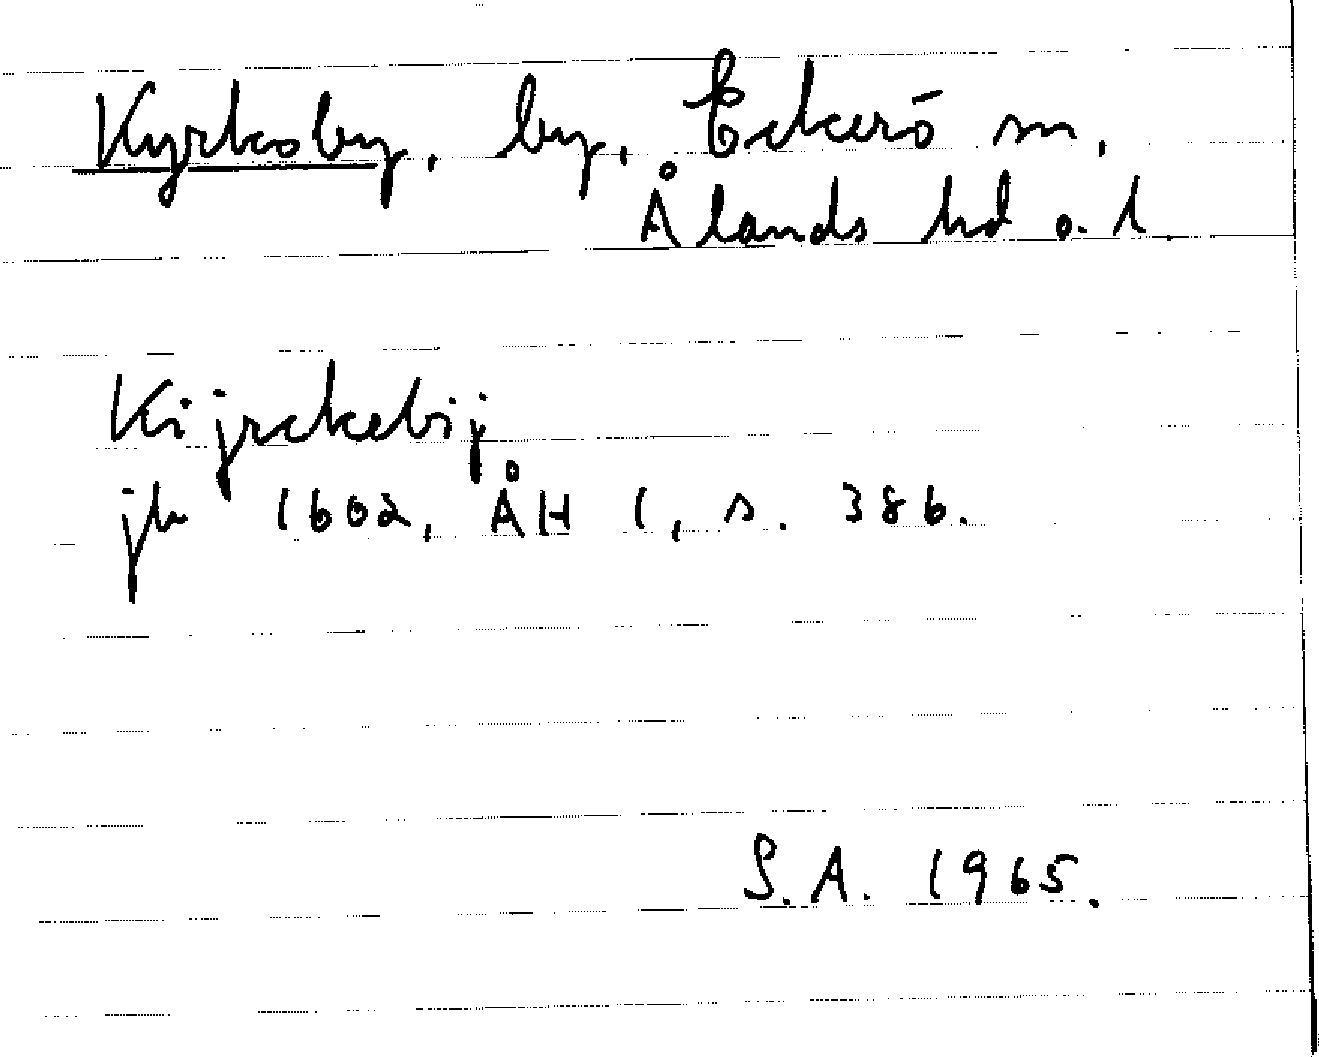 Kyrkoby, by, Eckerö sn,
Ålands hd o. l.
Kijrckebij
jb 1602, ÅH 1, s. 386.
S.A. 1965.